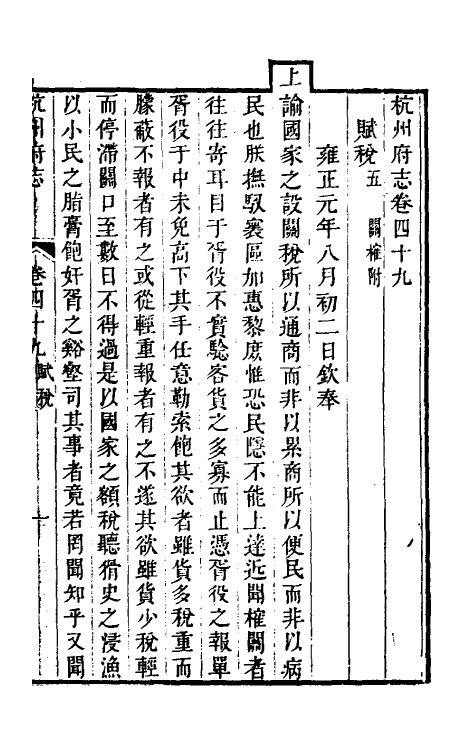 杭州府志卷四十九
賦稅五 關榷附
雍正元年八月初二日欽奉
上諭國家之設關稅所以通商而非以累商所以便民而非以病
民也朕撫馭寰區加惠黎庶惟恐民隱不能上達近聞榷關者
往往寄耳目于胥役不實驗客貨之多寡而止憑胥役之報單
胥役于中未免高下其手任意勒索飽其欲者雖貨多稅重而
朦蔽不報者有之或從輕重報者有之不遂其欲雖貨少稅輕
而停滯關口至數日不得過是以國家之額稅聽猾吏之浸漁
以小民之脂膏飽奸胥之谿壑司其事者竟若罔聞知乎又聞
杭州府志 卷四十九 賦稅 一